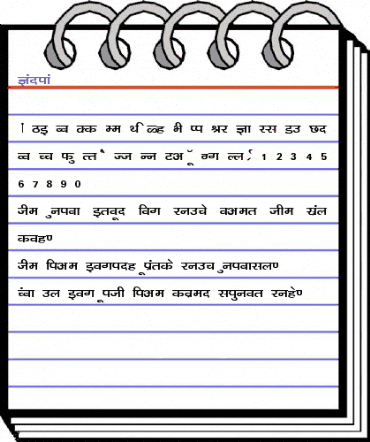 ज्ञंदपां
ठइ ब्व क्क म्म प्प श्रर ज्ञा स्स डउ छद
व्व च्च फु त्त ज्ज न्न टअ ग्ग ल्ल 1 2 3 4 5
6 7 8 9 0
जीम ुनपबा इतवूद विग रनउचे वअमत जीम संल
कवहण्
जीम पिअम इवगपदह ूप्रंतके रनउच ुनपबासलण्
उल इवग ूपजी पिअम कव्रमद सपुनवत रनहेण्